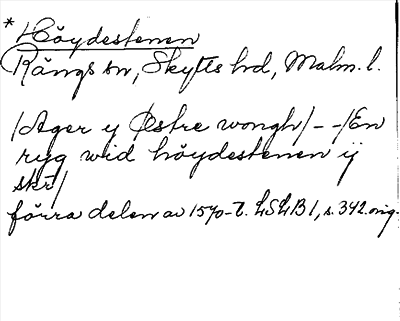 * Höydestenen
Rängs sn, Skytts hd, Malm. l.
/Ager y Østre wongh/ - -/En
ryg wid höydestenen ij
skr/
förra delen av 1570-t. LSLB 1, s. 342. orig.